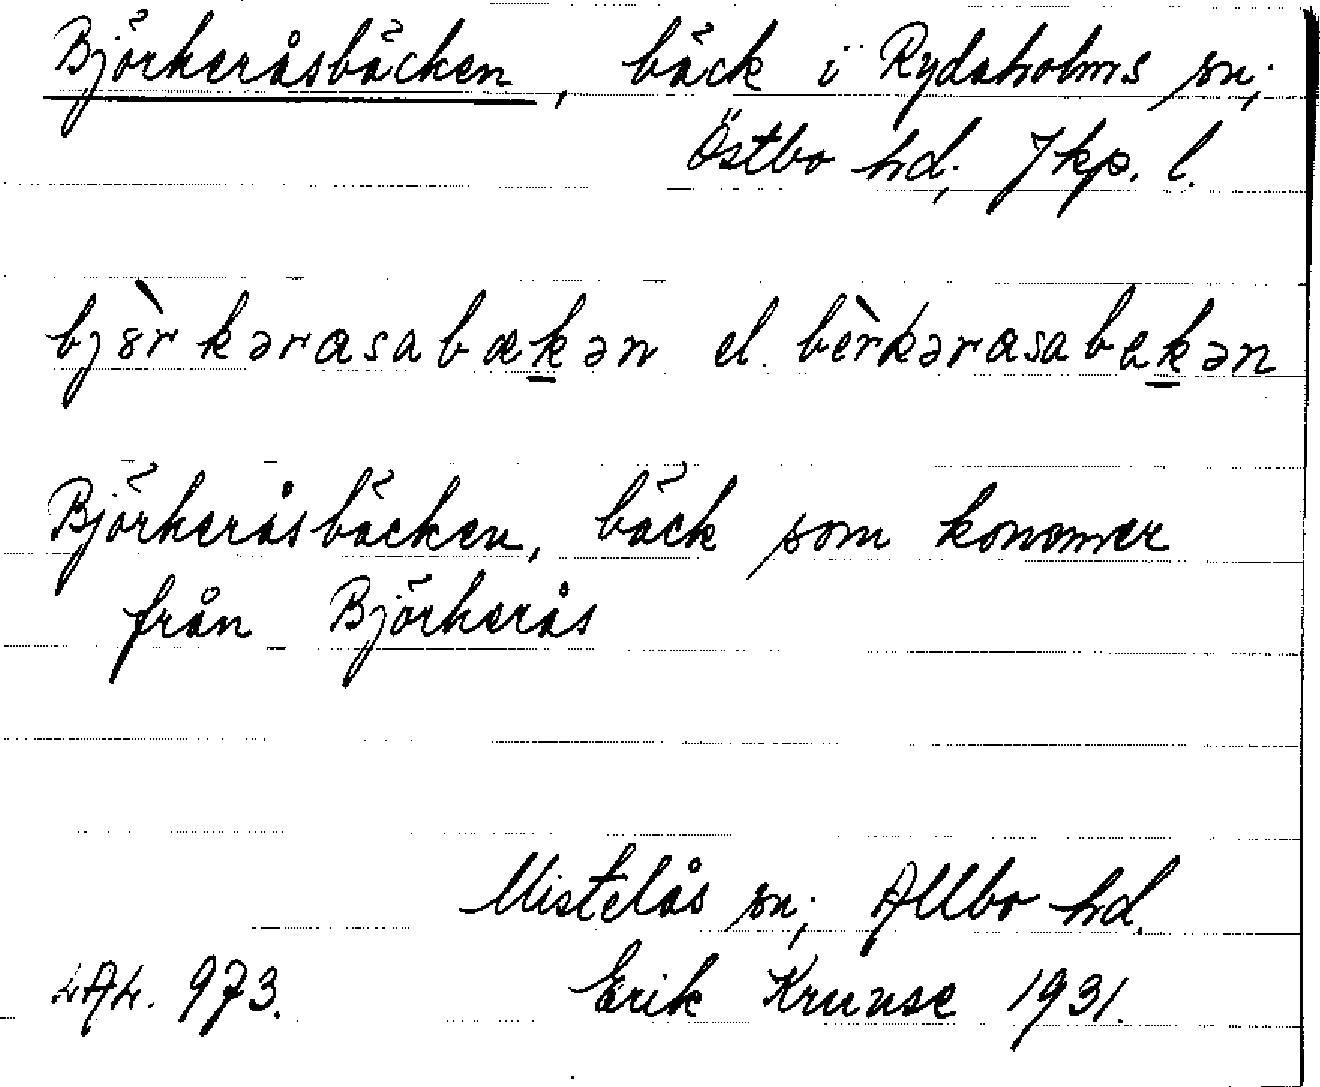 Björkeråsbäcken, bäck i Rydaholms sn;
Östbo hd; Jkp. l.
bjɵ̀rkərasabækən el. bèrkərasabækən
Björkeråsbäcken, bäck som kommer
från Björkerås
Mistelås sn; Allbo hd.
LAL. 973. Erik Kruuse 1931.